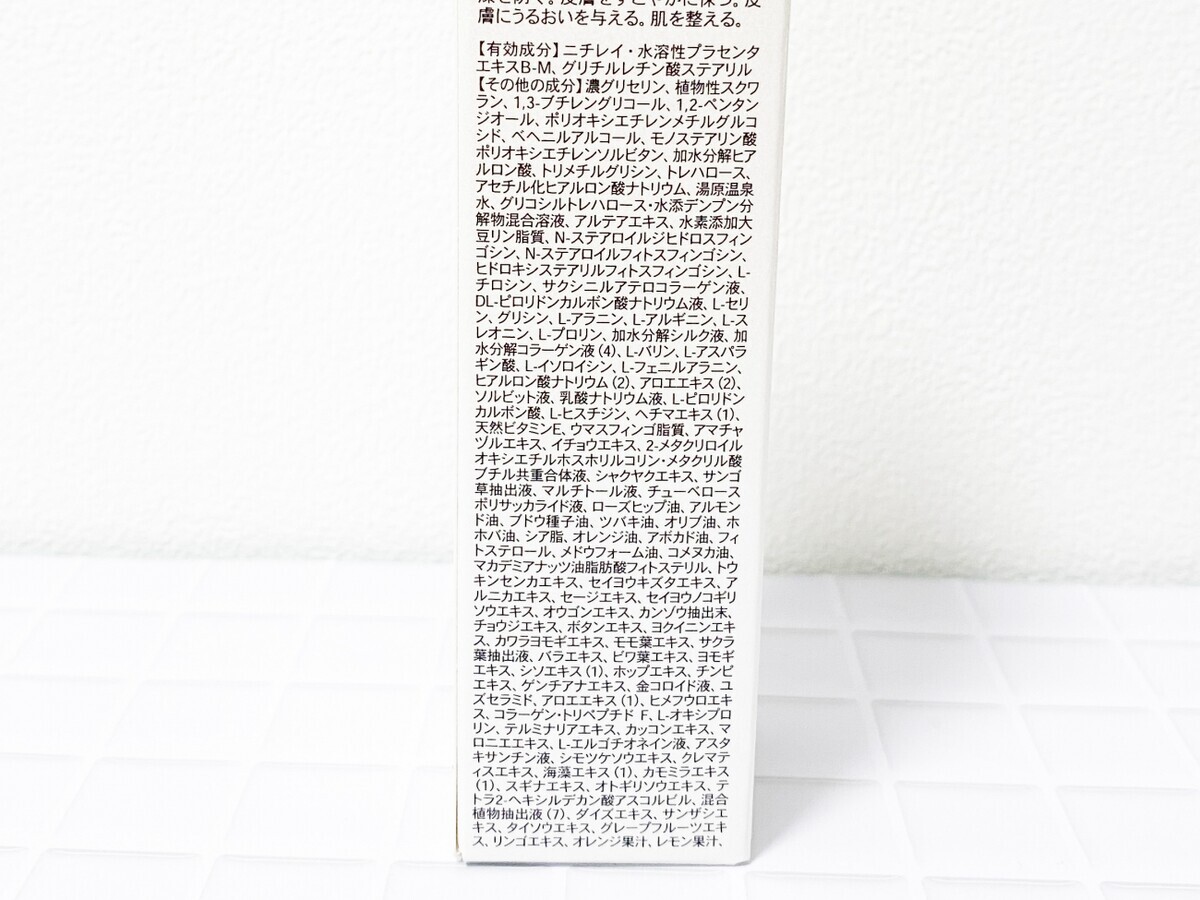 膚にうるおいを与える。肌を整える。
【有効成分】ニチレイ・水溶性プラセンタ
エキスB-M、グリチルレチン酸ステアリル
【その他の成分】濃グリセリン、植物性スクワ
ラン、1,3-ブチレングリコール、1,2-ペンタン
ジオール、ポリオキシエチレンメチルグルコ
シド、ベヘニルアルコール、モノステアリン酸
ポリオキシエチレンソルビタン、加水分解ヒア
ルロン酸、トリメチルグリシン、トレハロース、
アセチル化ヒアルロン酸ナトリウム、湯原温泉
水、グリコシルトレハロース・水添デンプン分
解物混合溶液、アルテアエキス、水素添加大
豆リン脂質、N-ステアロイルジヒドロスフィン
ゴシン、N-ステアロイルフィトスフィンゴシン、
ヒドロキシステアリルフィトスフィンゴシン、L-
チロシン、サクシニルアテロコラーゲン液、
DL-ピロリドンカルボン酸ナトリウム液、L-セリ
ン、グリシン、L-アラニン、L-アルギニン、L-ス
レオニン、L-プロリン、加水分解シルク液、加
水分解コラーゲン液(4)、L-バリン、L-アスパラ
ギン酸、L-イソロイシン、L-フェニルアラニン、
ヒアルロン酸ナトリウム(2)、アロエエキス(2)、
ソルビット液、乳酸ナトリウム液、L-ピロリドン
カルボン酸、L-ヒスチジン、ヘチマエキス(1)、
天然ビタミンE、ウマスフィンゴ脂質、アマチャ
ヅルエキス、イチョウエキス、2-メタクリロイル
オキシエチルホスホリルコリン・メタクリル酸
ブチル共重合体液、シャクヤクエキス、サンゴ
草抽出液、マルチトール液、チューベロース
ポリサッカライド液、ローズヒップ油、アルモン
ド油、ブドウ種子油、ツバキ油、オリブ油、ホ
ホバ油、シア脂、オレンジ油、アボカド油、フィ
トステロール、メドウフォーム油、コメヌカ油、
マカデミアナッツ油脂肪酸フィトステリル、トウ
キンセンカエキス、セイヨウキズタエキス、ア
ルニカエキス、セージエキス、セイヨウノコギリ
ソウエキス、オウゴンエキス、カンゾウ抽出末、
チョウジエキス、ボタンエキス、ヨクイニンエキ
ス、カワラヨモギエキス、モモ葉エキス、サクラ
葉抽出液、バラエキス、ビワ葉エキス、ヨモギ
エキス、シソエキス(1)、ホップエキス、チンピ
エキス、ゲンチアナエキス、金コロイド液、ユ
ズセラミド、アロエエキス(1)、ヒメフウロエキ
ス、コラーゲン・トリペプチド F、L-オキシプロ
リン、テルミナリアエキス、カッコンエキス、マ
ロニエエキス、L-エルゴチオネイン液、アスタ
キサンチン液、シモツケソウエキス、クレマテ
ィスエキス、海藻エキス(1)、カモミラエキス
(1)、スギナエキス、オトギリソウエキス、テ
トラ2-ヘキシルデカン酸アスコルビル、混合
植物抽出液(7)、ダイズエキス、サンザシエ
キス、タイソウエキス、グレープフルーツエキ
ス、リンゴエキス、オレンジ果汁、レモン果汁、